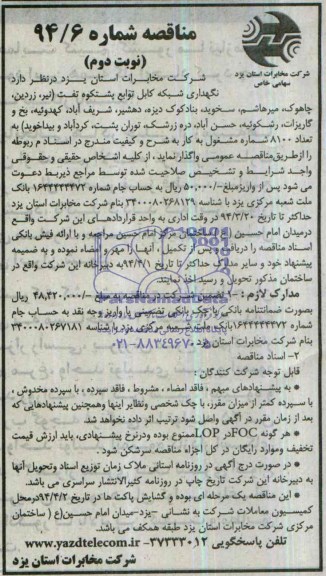 مناقصه شماره ۹۴/۶
(نوبت دوم)
شرکت مخابرات استان یزد
سهامی خاص
شرکت مخابرات استان یزد درنظر دارد
نگهداری شبکه کابل توابع پشتکوه تفت (نیر، زردین،
چاهوک، میرهاشم، سخوید، بنادکوک دیزه، دهشیر، شریف آباد، کهدوئیه، بخ و
گاریزات، رشکوئیه، حسن آباد، دره زرشک، توران پشت، کردآباد و بیداخوید) به
تعداد ۸۱۰۰ شماره مشغول به کار به شرح و کیفیت مندرج در اسناد مربوطه
را ازطریق مناقصه عمومی واگذار نماید، از کلیه اشخاص حقیقی و حقوقی
واجد شرایط و تشخیص صلاحیت شده توسط مراجع ذیربط دعوت
می شود پس از واریز مبلغ ۵۰۰/۰۰۰ ریال به حساب جام شماره ۱۶۴۴۴۴۴۳۷۲ بانک
ملت شعبه مرکزی یزد با شناسه ۳۴۰۰۰۸۰۲۶۸۱۲۹ بنام شرکت مخابرات استان یزد
حداکثر تا تاریخ ۹۴/۳/۲۰ در وقت اداری به واحد قراردادهای این شرکت واقع
درمیدان امام حسین (ع) ساختمان مرکز امام حسین مراجعه و با ارائه فیش بانکی
اسناد مناقصه را دریافت و پس از تکمیل، آنها را مهر و امضاء نموده و به ضمیمه
پیشنهاد خود و سایر مدارک حداکثر تا تاریخ ۹۴/۴/۱ به دبیرخانه این شرکت واقع در
ساختمان مذکور تحویل و رسید اخذ نمایند.
مدارک لازم: ۱- تضمین شرکت در مناقصه به مبلغ ۴۸,۴۲۰,۰۰۰/- ریال
بصورت ضمانتنامه بانکی یا چک بانکی تضمینی یا واریز وجه نقد به حساب جام
شماره ۱۶۴۴۴۴۴۳۷۲ بانک ملت شعبه مرکزی یزد با شناسه ۳۴۰۰۰۸۰۲۶۷۱۸۱
بنام شرکت مخابرات یزد
۰۲۱-۸۸۳۴۹۶۷۰
۲- اسناد مناقصه
قابل توجه شرکت کنندگان :
• به پیشنهادهای مبهم، فاقد امضاء، مشروط، فاقد سپرده، با سپرده مخدوش،
با سپرده کمتر از میزان مقرر، با چک شخصی ونظایر اینها وهمچنین پیشنهادهایی که
بعد از زمان مقرر در آگهی واصل شود ترتیب اثر داده نخواهد شد
• هر گونه FOC در LOP ممنوع بوده ودرنرخ پیشنهادی، باید ارزش قیمت
تخفیف وموارد رایگان در کل اجزاء مناقصه سرشکن شود.
• در صورت درج آگهی در روزنامه استانی ملاک زمان توزیع اسناد وتحویل آنها
به دبیرخانه این شرکت تاریخ چاپ در روزنامه کثیرالانتشار سراسری می باشد.
• این مناقصه یک مرحله ای بوده و گشایش پاکت ها در تاریخ ۹۴/۴/۲ درمحل
کمیسیون معاملات شرکت به نشانی -یزد-میدان امام حسین(ع) ساختمان
مرکزی شرکت مخابرات استان یزد طبقه همکف می باشد.
تلفن پاسخگویی ۳۷۳۳۳۰۱۲- www.yazdtelecom.ir
شرکت مخابرات استان یزد